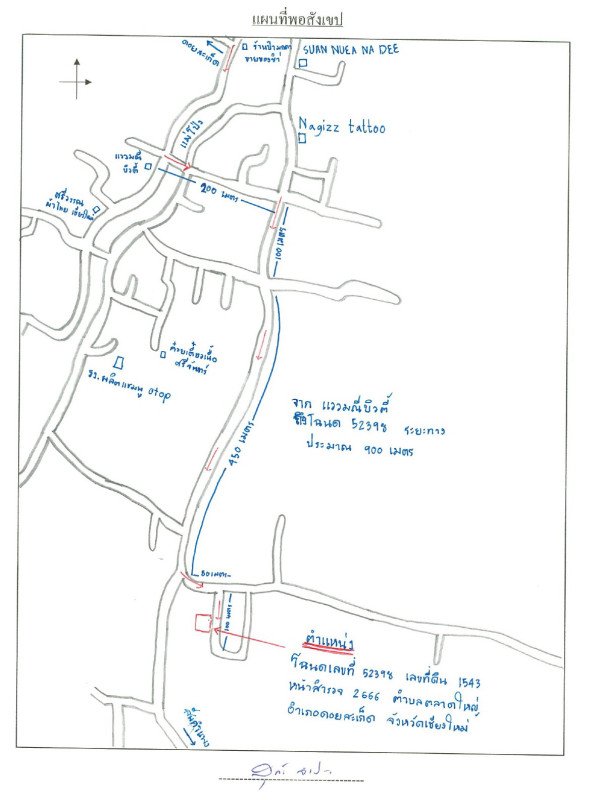 แผนที่พอสังเขป
ดอยสะเก็ด
ขายของชำ
SUAN NUEA NA DEE
แม่โป่ง
Nagizz tattoo
แววมณี
บิวตี้
200 เมตร
ศรีวรรณ
ผ้าไทย เชียงใหม่
100 เมตร
ก๋วยเตี๋ยวเนื้อ
ศรีจันทร์
รง.ผลิตแชมพู otop
จาก แววมณีบิวตี้
ถึงโฉนด 52398 ระยะทาง
ประมาณ 900 เมตร
450 เมตร
50 เมตร
100 เมตร
ตำแหน่ง
โฉนดเลขที่ 52398 เลขที่ดิน 1543
หน้าสำรวจ 2666 ตำบลตลาดใหญ่
อำเภอดอยสะเก็ด จังหวัดเชียงใหม่
สันกำแพง